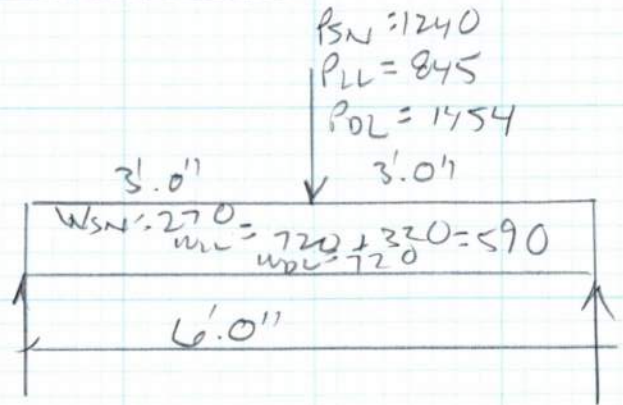 PSN = 1240
PLL = 845
PDL = 1454
3'.0" 3'.0"
WSN = 270
WLL = 720 + 320 = 590
WDL = 720
6'.0"